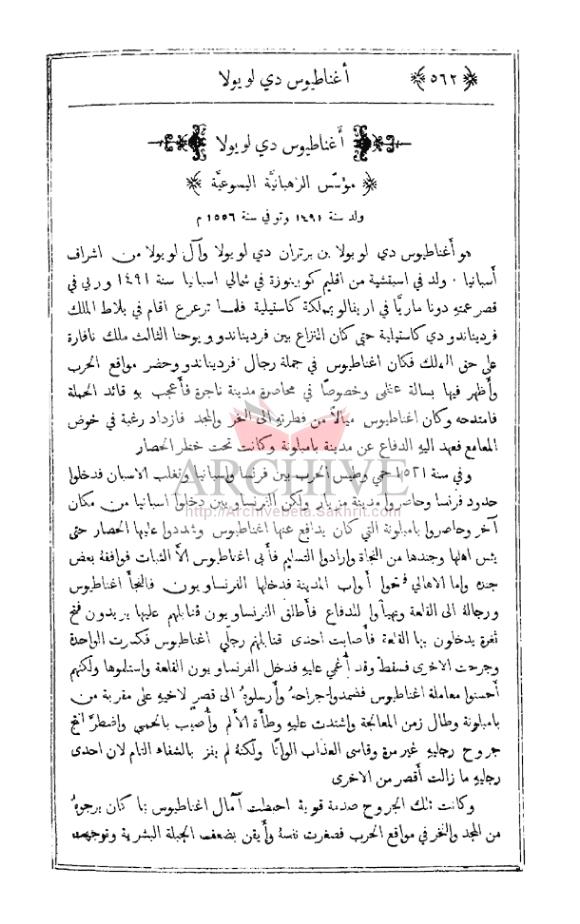 ٥٦٢ أغناطيوس دي لويولا
أغناطيوس دي لويولا
مؤسس الرهبانيَّة اليسوعيَّة
ولد سنة ١٤٩١ وتوفي سنة ١٥٥٦ م
هو أغناطيوس دي لويولا بن برتران دي لويولا وآل لويولا من اشراف
أسبانيا ٠ ولد في اسبتشية من اقليم كوبنوزة في شمالي اسبانيا سنة ١٤٩١ وربي في
قصر عمته دونا ماريَّا في اريفالو بمملكة كاستيلية فلما ترعرع اقام في بلاط الملك
فرديناندو دي كاستيلية حتى كان النزاع بين فرديناندو ويوحنا الثالث ملك نافارة
على حق الملك فكان اغناطيوس في جملة رجال فرديناندو وحضر مواقع الحرب
وأظهر فيها بسالة عظمى وخصوصاً في محاصرة مدينة ناجرة فأعجب به قائد الحملة
فامتدحه وكان اغناطيوس ميالاً من فطرته الى الفخر والمجد فازداد رغبة في خوض
المعامع فعهد اليه الدفاع عن مدينة بامبلونة وكانت تحت خطر الحصار
وفي سنة ١٥٢١ حمي وطيس الحرب بين فرنسا واسبانيا وتغلب الاسبان فدخلوا
حدود فرنسا وحاصروا مدينة مزيار ولكن الفرنساويين دخلوا اسبانيا من مكان
آخر وحاصروا بامبلونة التي كان يدافع عنها اغناطيوس وشددوا عليها الحصار حتى
يئس اهلها وجندها من النجاة وارادوا التسليم فأبى اغناطيوس الاَّ الثبات فوافقه بعض
جنده واما الاهالي فتحوا أبواب المدينة فدخلها الفرنساويون فالتجأ اغناطيوس
ورجاله الى القلعة وتهيأوا للدفاع فأطلق الفرنساويون قنابلهم عليها يريدون فتح
ثغرة يدخلون بها القلعة فأصابت احدى قنابلهم رجلَي اغناطيوس فكسرت الواحدة
وجرحت الاخرى فسقط وقد أغمي عليه فدخل الفرنساويون القلعة واستلموها ولكنهم
أحسنوا معاملة اغناطيوس فضمدوا جراحهُ وأرسلوهُ الى قصر لاخيه على مقربة من
بامبلونة وطال زمن المعالجة واشتدت عليه وطأة الألم وأصيب بالحمى واضطرَّ لفتح
جروح رجليه غير مرة وقاسى العذاب الواناً ولكنهُ لم يفز بالشفاء التام لان احدى
رجليه ما زالت أقصر من الاخرى
وكانت تلك الجروح صدمة قوية احبطت آمال اغناطيوس بما كان يرجوهُ
من المجد والفخر في مواقع الحرب فصغرت نفسهُ وأيقن بضعف الجبلة البشرية وتوجهت
ARCHIVE
http://Archivebeta.Sakhrit.com